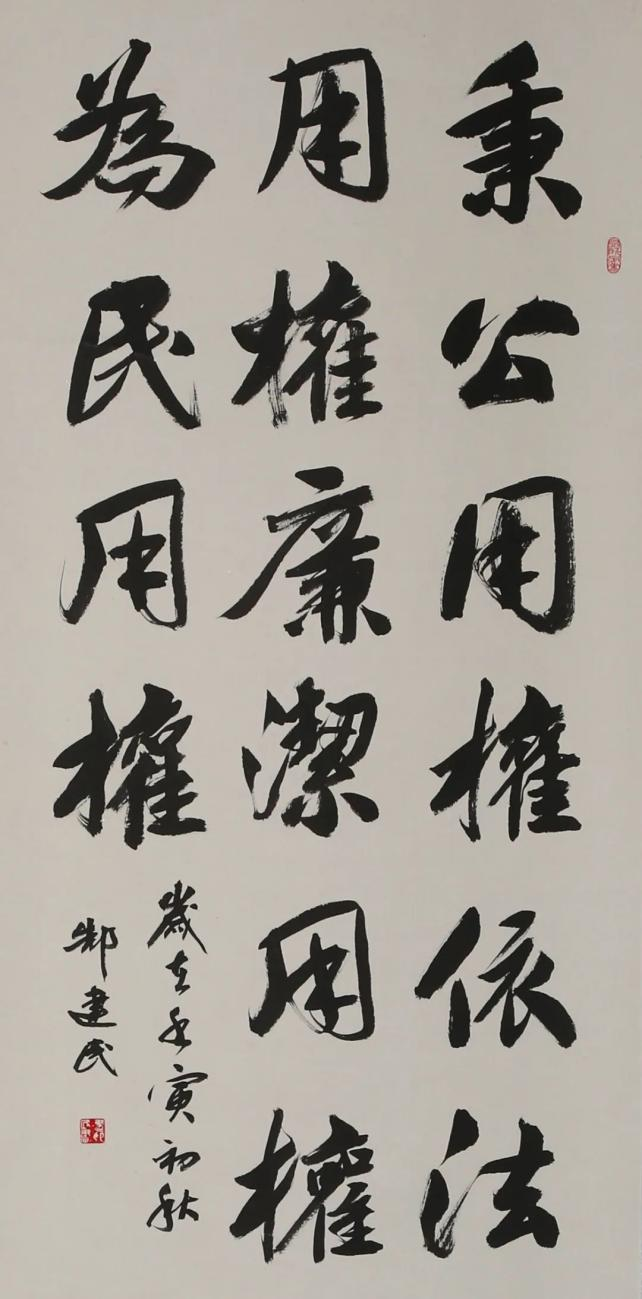 秉公用權依法
用權廉潔用權
為民用權
歲在壬寅初秋
鄒建民